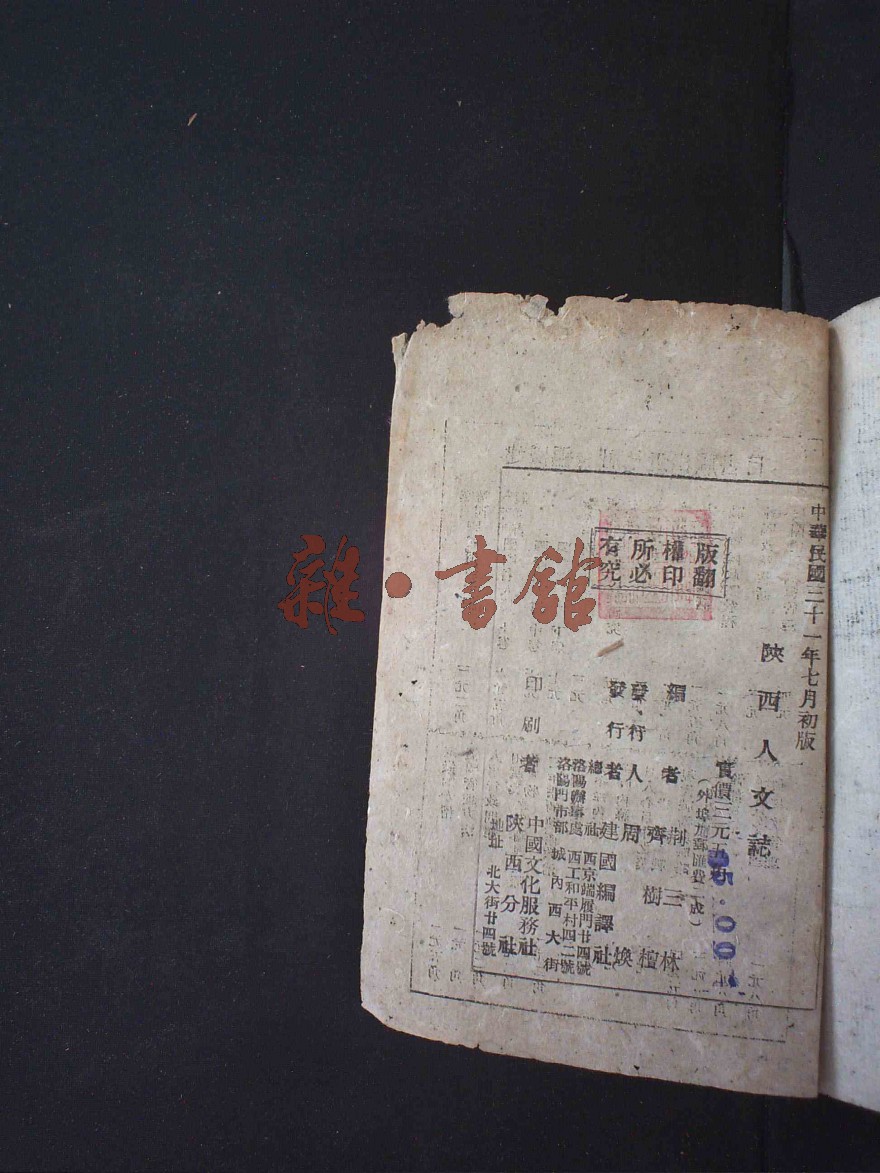 中華民國三十一年七月初版
陝西人文誌
實價三元五角
(外埠加郵匯費二成)
5.00
編者 荆三林
齊樹檀
發行人 周煥
發行者 建國編譯社
總社 西京端履門廿四號
洛陽辦事處 西工和平村四二號
洛陽門市部 城內西大街
印刷者 中國文化服務社
陝西分社
地址 北大街廿四號
版權所有
翻印必究
雜·書館